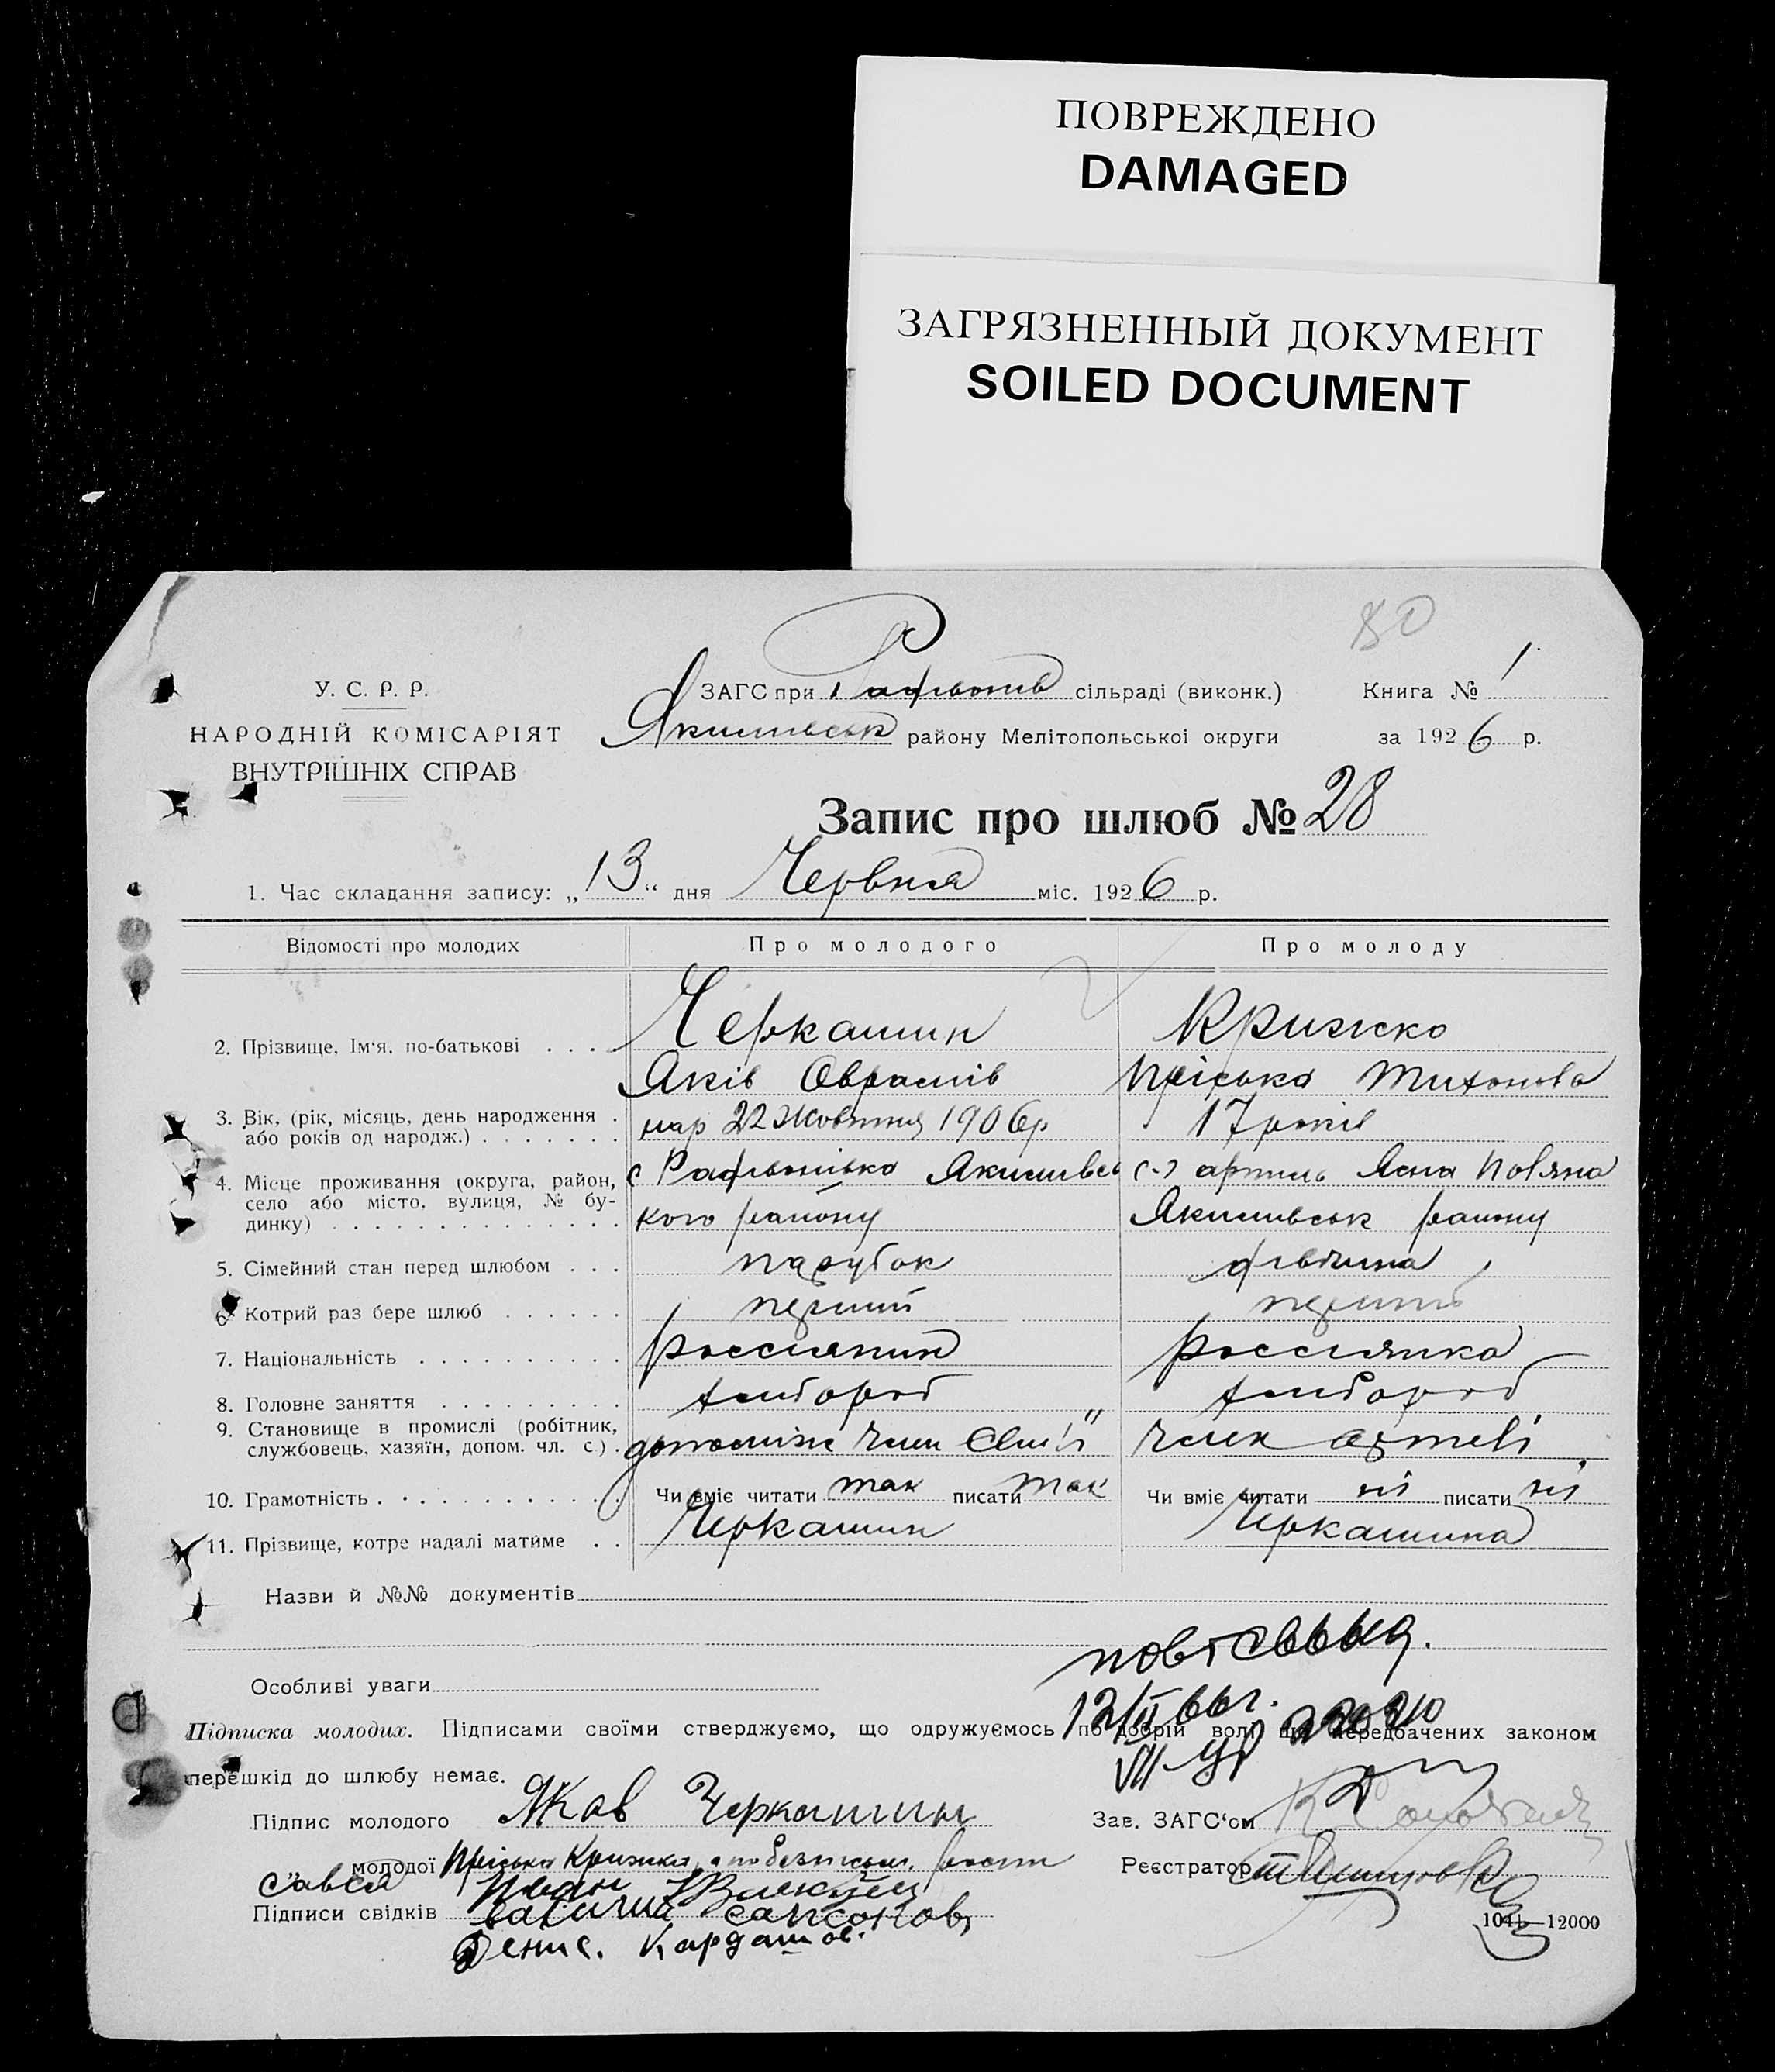 ПОВРЕЖДЕНО
DAMAGED
ЗАГРЯЗНЕННЫЙ ДОКУМЕНТ
SOILED DOCUMENT
80
У. С. Р. Р.
НАРОДНІЙ КОМІСАРІЯТ
ВНУТРІШНІХ СПРАВ
ЗАГС при сільраді (виконк.)
Книга № 1
Якимівськ району Мелітопольської округи
за 1926 р.
Запис про шлюб № 28
1. Час складання запису: „13“ дня Червня міс. 1926 р.
Відомості про молодих
Про молодого
Про молоду
2. Прізвище, Ім'я, по-батькові . . . .
Черкашин
Яків Оврамів
Крижско
Пріська Тихонова
3. Вік, (рік, місяць, день народження . або років од народж.) . . . . . . .
нар 22 Жовтня 1906 р
17 років
4. Місце проживання (округа, район, село або місто, вулиця, № будинку) . . . . . . . . . . . . . .
с Якимівсь
кого району
артиль Ясна Поляна
Якимівськ району
5. Сімейний стан перед шлюбом . . .
парубок
дівчина
6. Котрий раз бере шлюб . . . . . .
перший
перший
7. Національність . . . . . . . . . .
россиянин
россиянка
8. Головне заняття . . . . . . . . .
хлібороб
хлібороб
9. Становище в промислі (робітник, службовець, хазяїн, допом. чл. с.) .
допоміж член сімії
член артелі
10. Грамотність . . . . . . . . . . . .
Чи вміє читати так писати так
Чи вміє читати ні писати ні
11. Прізвище, котре надалі матиме . .
Черкашин
Черкашина
Назви й №№ документів
Особливі уваги
Підписка молодих. Підписами своїми стверджуємо, що одружуємось по добрій волі, що передбачених законом
перешкід до шлюбу немає.
Підпис молодого Яков Черкашин
Зав. ЗАГС'ом
„ молодої Пріська
Реєстратор
Підписи свідків
Денис. Кардашов.
1041—12000